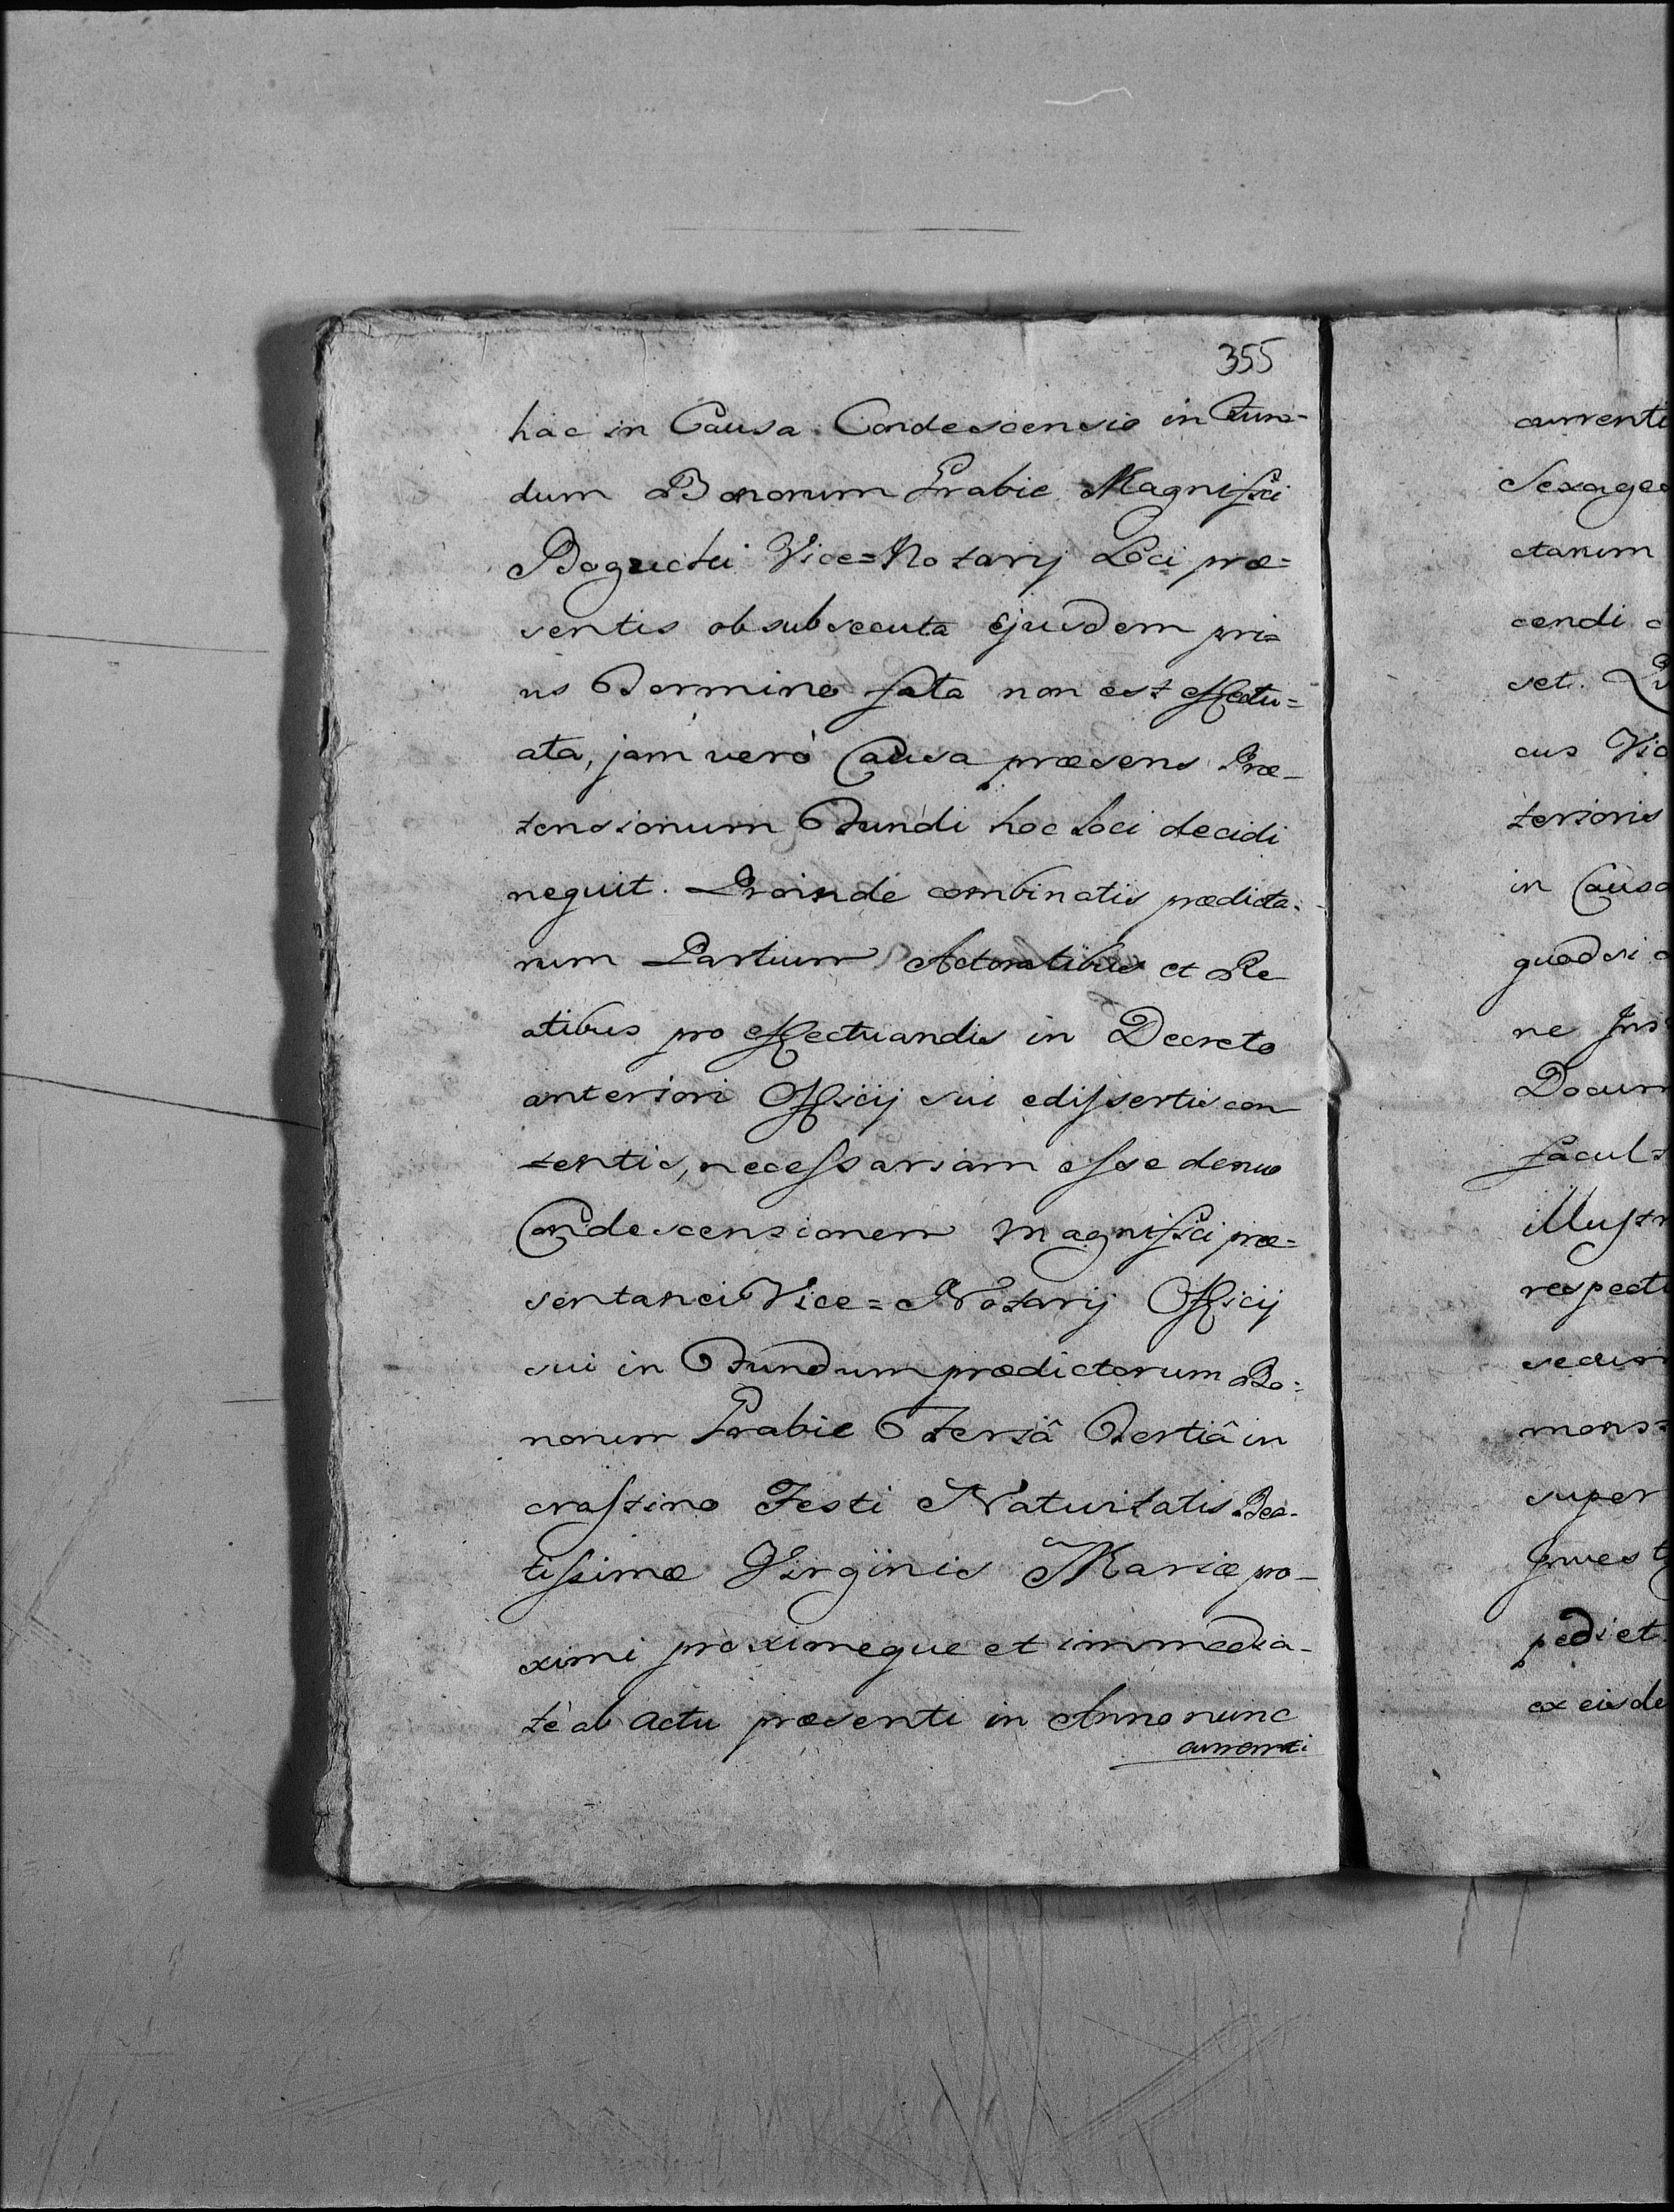 355
hac in Causa Condescensio in Fun-
dum Bonorum Grabie Magnifici
Bogucki Vice=Notarij Loci præ=
sentis ob subsecuta Ejusdem pri=
us Termino fata non est effectu=
ata, jam verò Causa præsens Præ-
tensionum Fundi hoc loci decidi
nequit. Proinde combinatis prædicta-
rum Partium Actoratibus et Re
atibus pro effectuandis in Decreto
anteriori Officij sui edissertis con
tentis, necessariam esse denuo
Condescensionem Magnifici præ=
sentanei Vice=Notarij Officij
sui in Fundum prædictorum Bo=
norum Grabie Feriâ Tertiâ in
crastino Festi Nativitatis Bea-
tissimæ Virginis Mariæ pro-
ximi proximeque et immedia-
tè ab actu præsenti in Anno nunc
currenti
currenti
Sexage
ctarum
cendi
set.
cus Vic
terioris
in Causa
quodsi
ne Ins
Docum
facult
Illustr
respectu
secum
monst
super
Invest
pediet
ex eisde